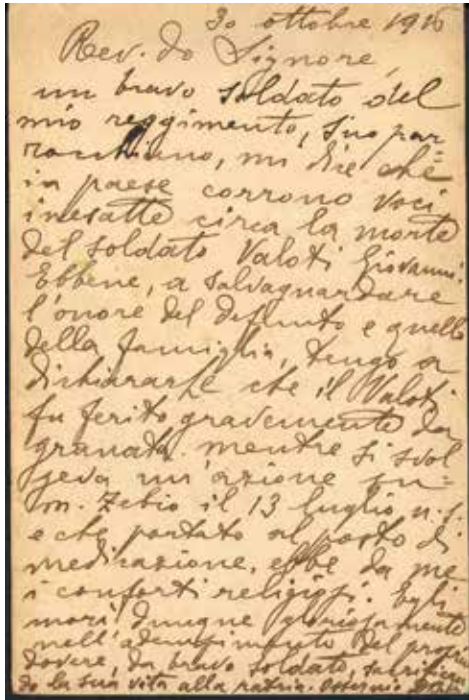 30 ottobre 1916
Rev.do Signore,
un bravo soldato del
mio reggimento, suo par=
rocchiano, mi dice che
in paese corrono voci
inesatte circa la morte
del soldato Valoti Giovanni.
Ebbene, a salvaguardare
l'onore del defunto e quello
della famiglia, tengo a
dichiararle che il Valoti
fu ferito gravemente da
granata mentre si svol
geva un'azione su=
m. Zebio il 13 luglio u.s.
e che portato al posto di
medicazione, ebbe da me
i conforti religiosi. Egli
morì dunque gloriosamente
nell'adempimento del proprio
dovere, da bravo soldato, sacrifican
do la sua vita alla patria.